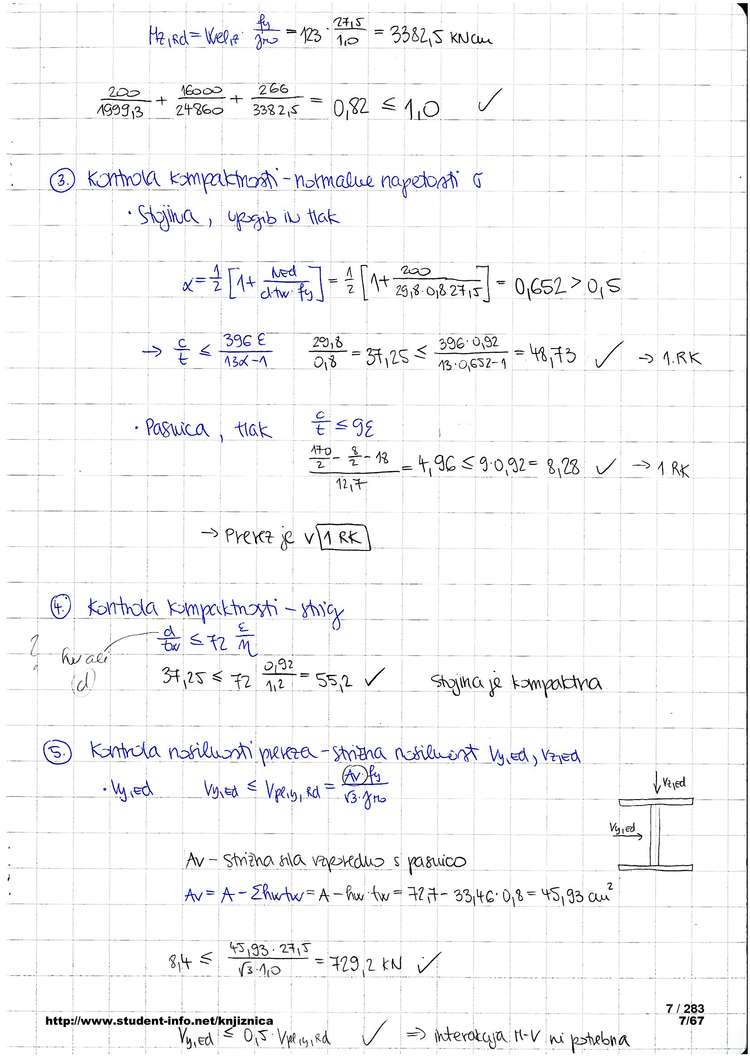 Mz,Rd = Wel,z · fy/γM0 = 123 · 27,5/1,0 = 3382,5 kNcm
200/1999,3 + 16000/24860 + 266/3382,5 = 0,82 ≤ 1,0 ✓
3. Kontrola kompaktnosti - normalne napetosti σ
· Stojina, upogib in tlak
α = 1/2 [1 + Ned/(d·tw·fy)] = 1/2 [1 + 200/(29,8·0,8 27,5)] = 0,652 > 0,5
→ c/t ≤ 396 ε/(13α-1) 29,8/0,8 = 37,25 ≤ 396·0,92/(13·0,652-1) = 48,73 ✓ → 1.RK
· Pasnica, tlak c/t ≤ 9ε
(170/2 - 8/2 - 18)/12,7 = 4,96 ≤ 9·0,92 = 8,28 ✓ → 1 RK
→ Prerez je v 1 RK
4. Kontrola kompaktnosti - strig
d/tw ≤ 72 ε/η
? hw ali (d)
37,25 ≤ 72 0,92/1,2 = 55,2 ✓ Stojina je kompaktna
5. Kontrola nosilnosti prereza - strižna nosilnost Vy,Ed, Vz,Ed
· Vy,Ed Vy,Ed ≤ Vpl,y,Rd = Av fy/(√3·γM0)
Vz,Ed
Vy,Ed
Av - Strižna sila vzporedno s pasnico
Av = A - Σhwtw = A - hw·tw = 72,7 - 33,46·0,8 = 45,93 cm²
8,4 ≤ 45,93·27,5/(√3·1,0) = 729,2 kN ✓
7 / 283
http://www.student-info.net/knjiznica 7/67
Vy,Ed ≤ 0,5·Vpl,y,Rd ✓ ⇒ interakcija M-V ni potrebna